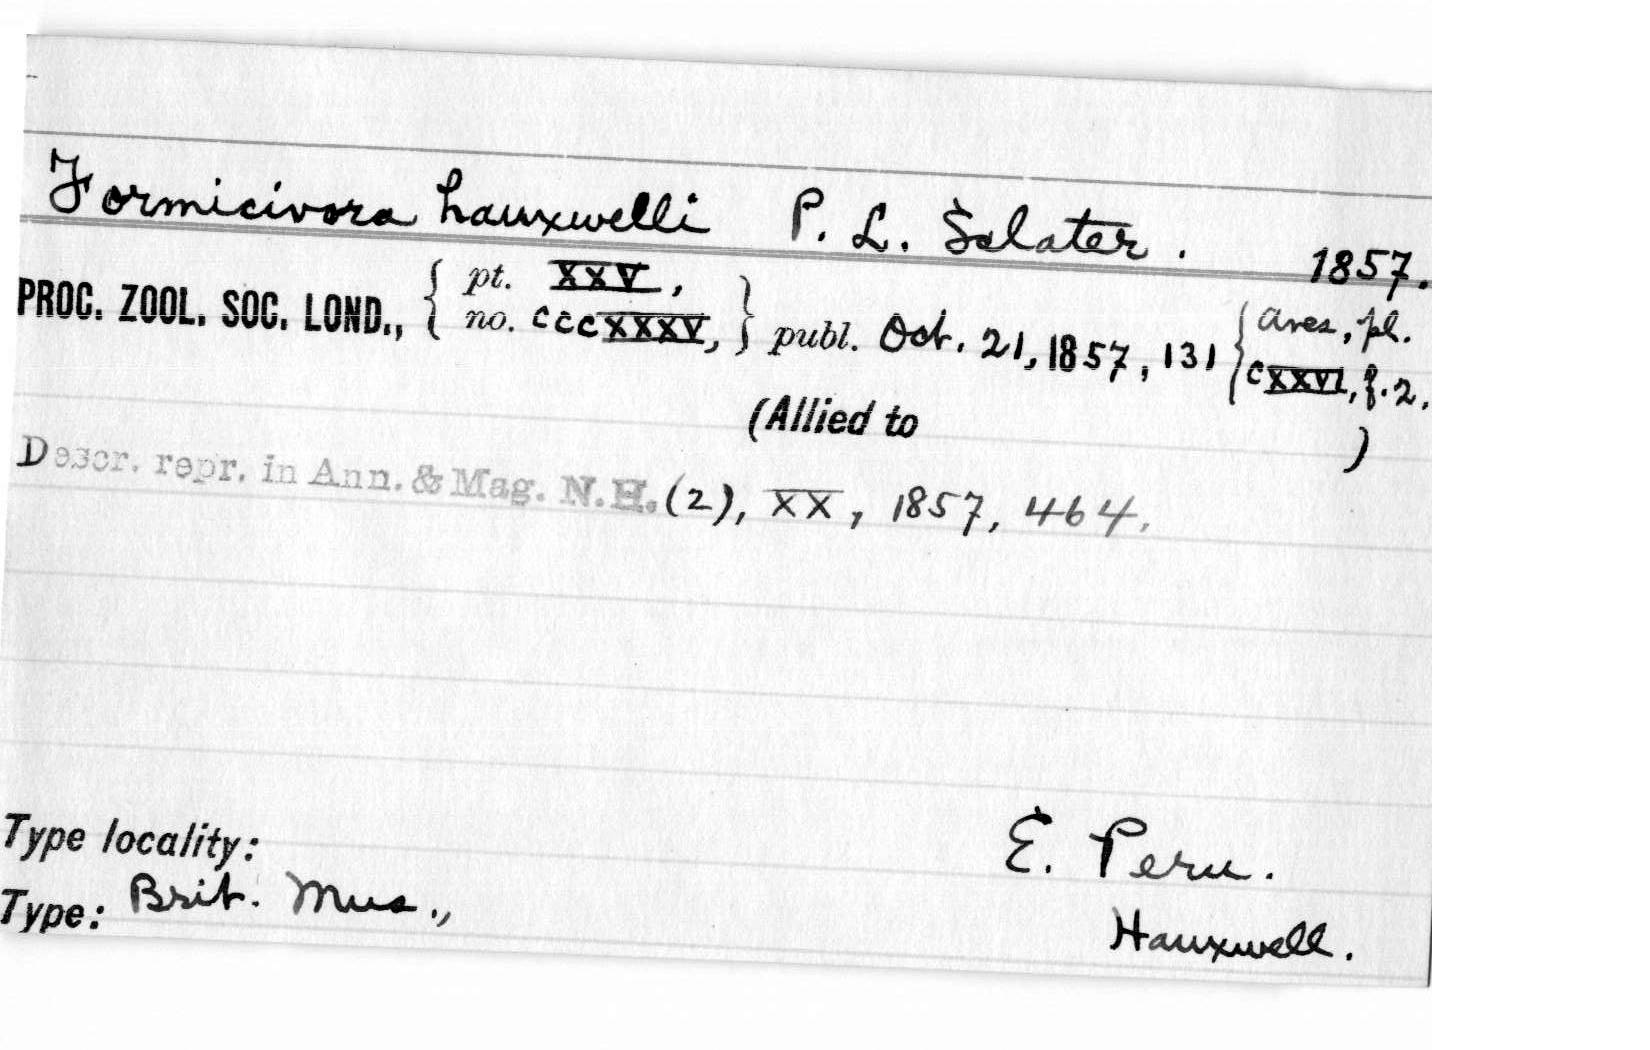 Formicivora hauxwelli P. L. Sclater. 1857.
PROC. ZOOL. SOC. LOND., { pt. XXV, no. cccXXXV, } publ. Oct. 21, 1857, 131 { Aves, pl. cXXVI, f. 2.
(Allied to )
Descr. repr. in Ann. & Mag. N.H. (2), XX, 1857, 464.
Type locality: E. Peru.
Type: Brit. Mus., Hauxwell.